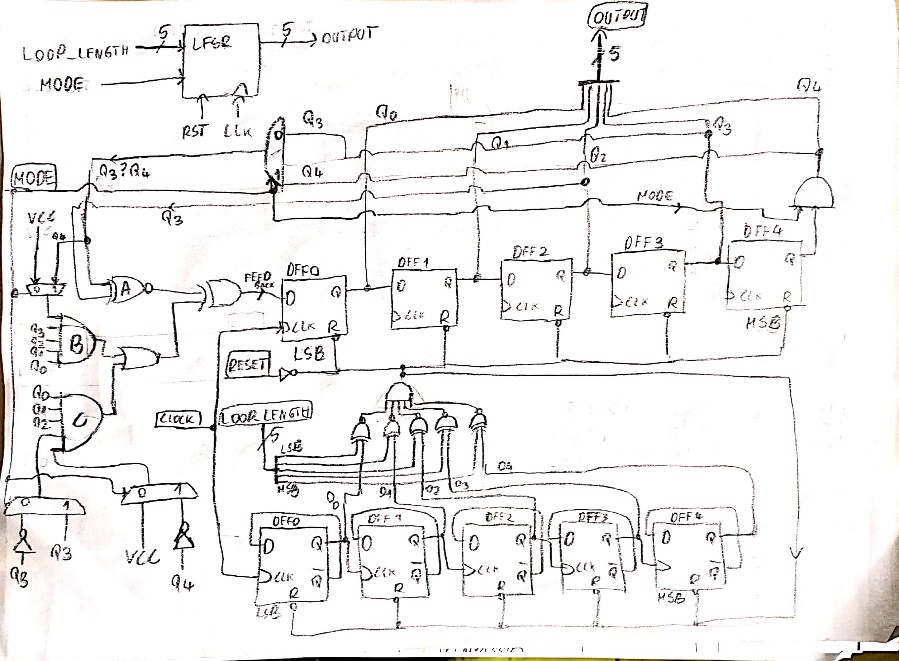 OUTPUT
5
LOOP_LENGTH
5
LFSR
5
OUTPUT
MODE
RST
CLK
Q4
0
Q3
Q0
Q1
Q3
Q3?Q4
1
Q4
Q2
MODE
Q3
MODE
VCC
Q4
0 1
A
FEED
BACK
DFF0
D
CLK
R
LSB
DFF1
D
CLK
R
DFF2
D
Q
CLK
R
DFF3
D
Q
CLK
R
DFF4
D
Q
CLK
R
MSB
Q3
Q2
Q1
Q0
B
RESET
Q0
Q1
Q2
C
CLOCK
LOOP_LENGTH
5
LSB
MSB
O0
O1
O2
O3
O4
0 1
0 1
Q3
Q3
VCC
Q4
DFF0
D Q
CLK Q
R
LSB
DFF1
D Q
CLK Q
R
DFF2
D Q
CLK Q
R
DFF3
D Q
CLK Q
R
DFF4
D Q
CLK Q
R
MSB